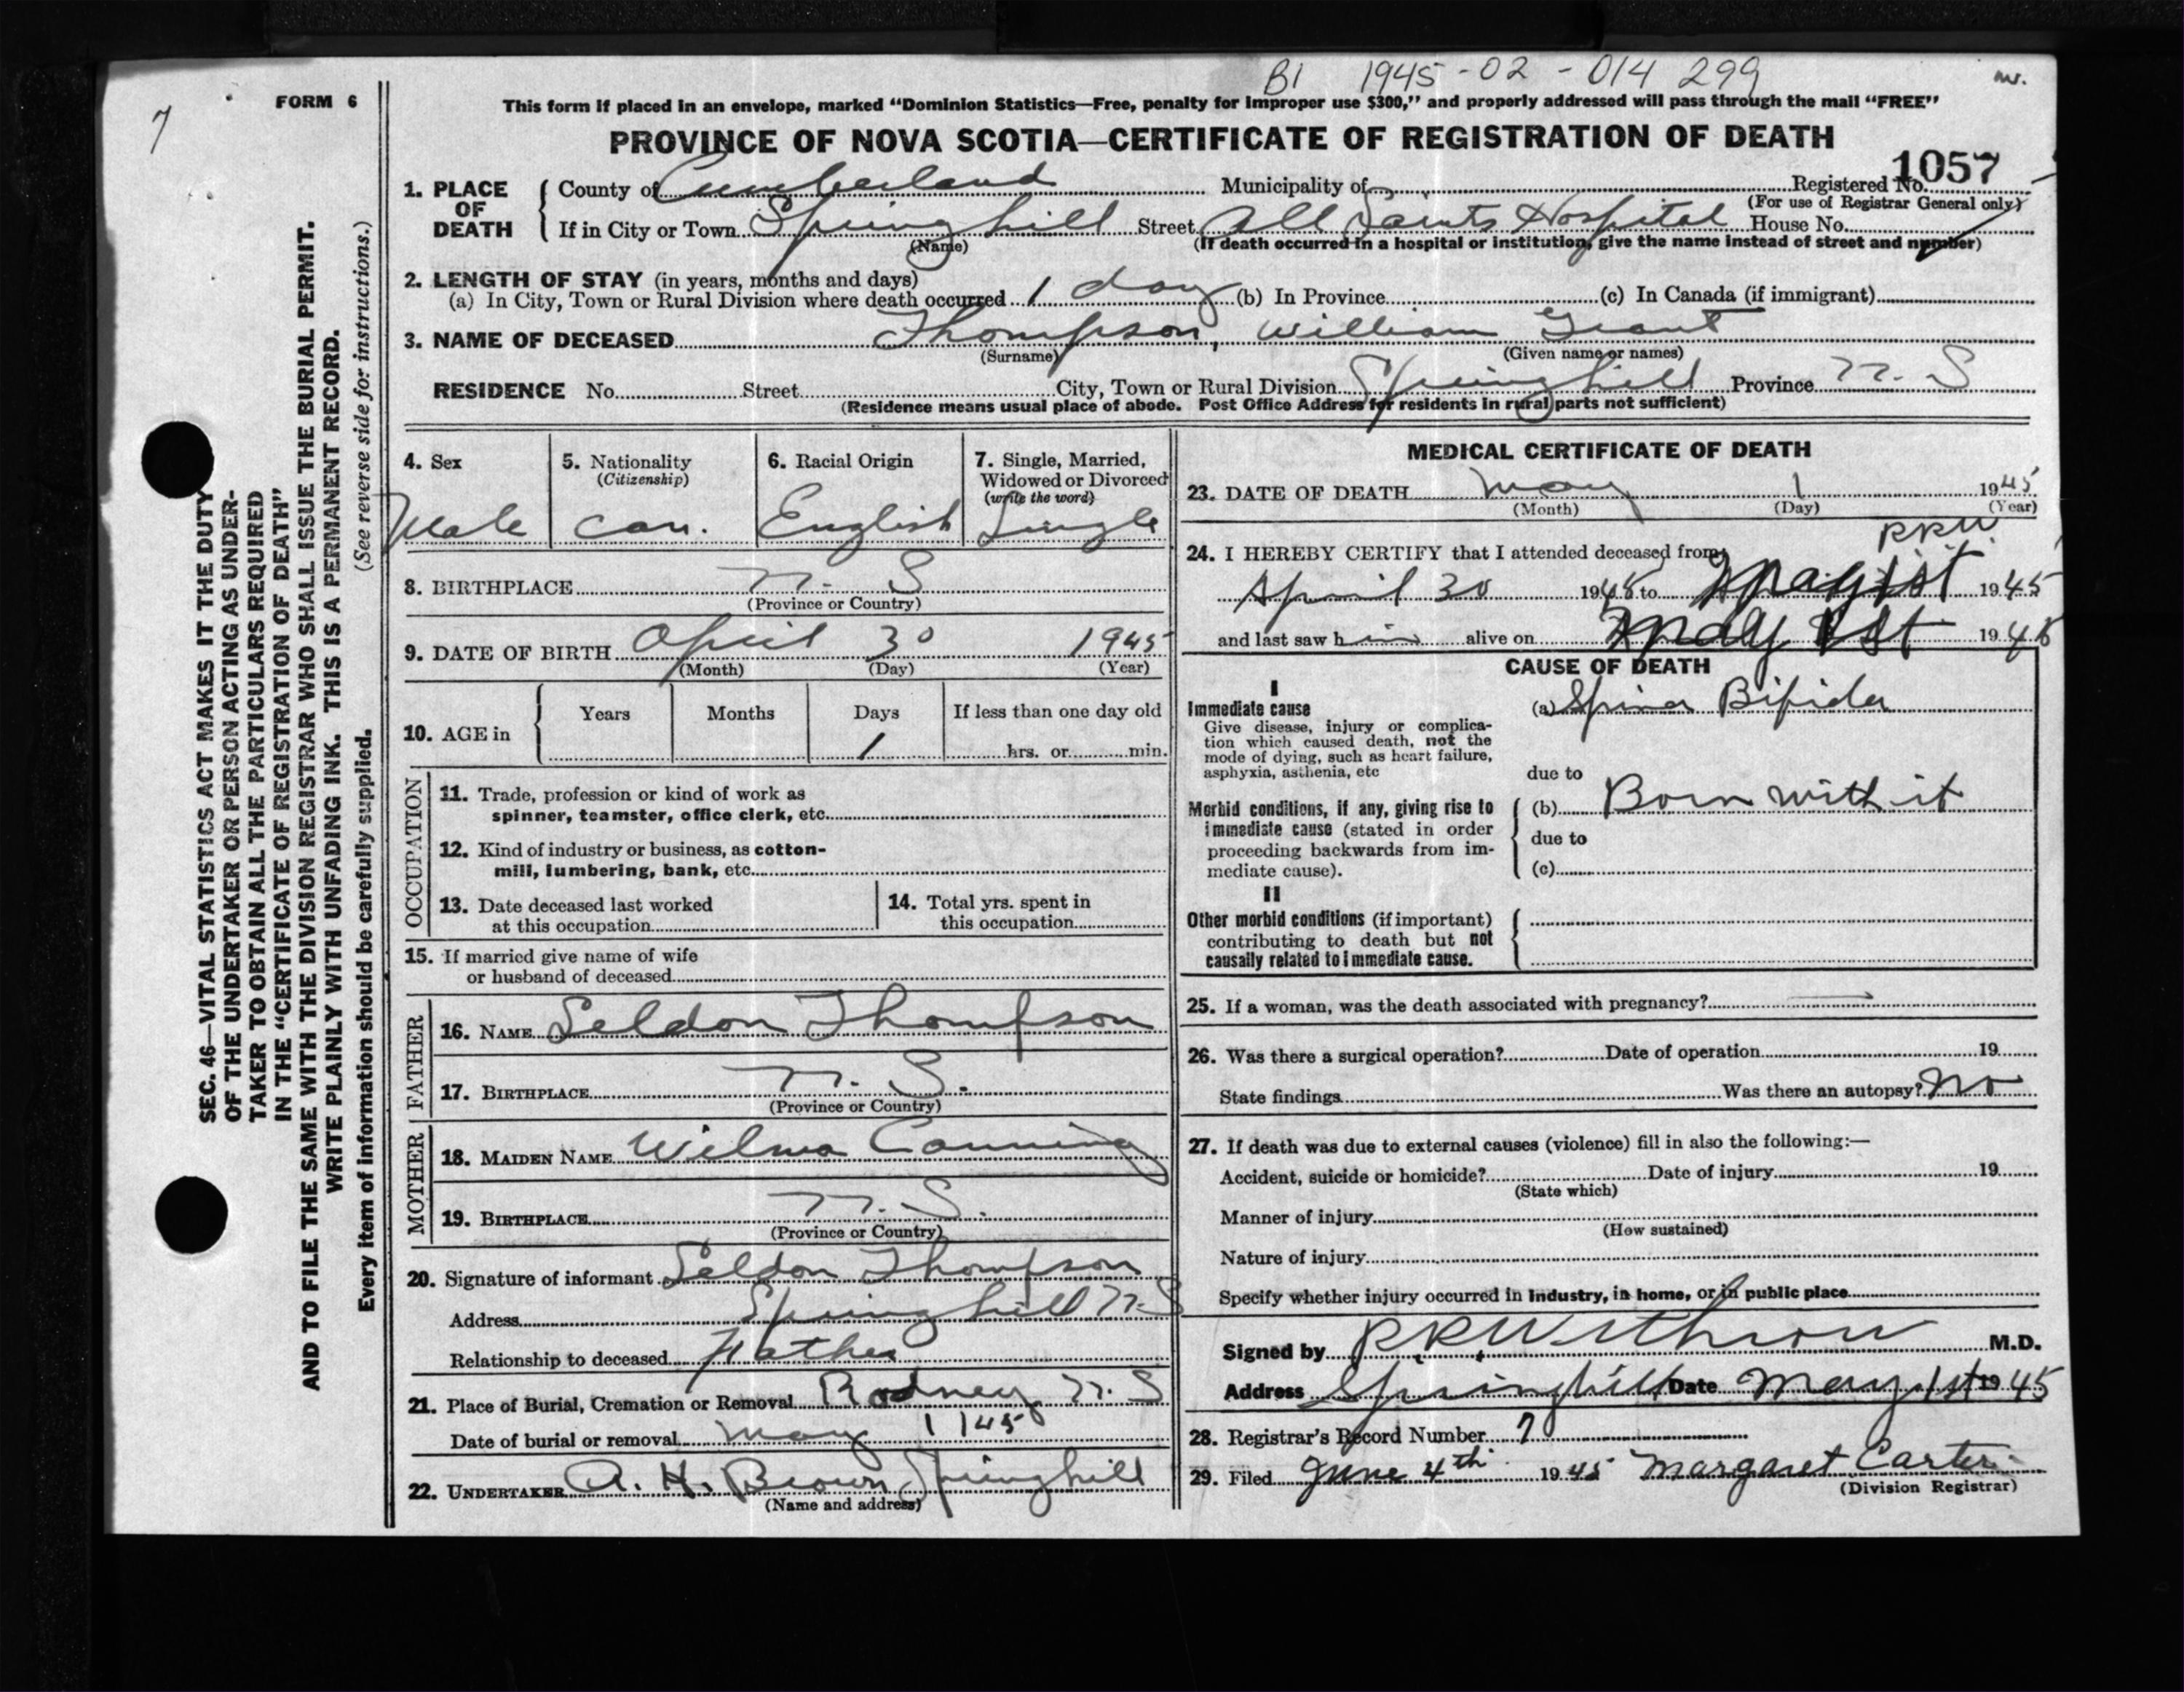 B1 1945-02-014 299
nw.
7
FORM 6
This form if placed in an envelope, marked "Dominion Statistics—Free, penalty for improper use $300," and properly addressed will pass through the mail "FREE"
PROVINCE OF NOVA SCOTIA—CERTIFICATE OF REGISTRATION OF DEATH
1057
1. PLACE OF DEATH
County of Cumberland Municipality of Registered No.
(For use of Registrar General only)
If in City or Town Springhill Street All Saints Hospital House No.
(Name) (If death occurred in a hospital or institution, give the name instead of street and number)
2. LENGTH OF STAY (in years, months and days)
(a) In City, Town or Rural Division where death occurred 1 day (b) In Province (c) In Canada (if immigrant)
3. NAME OF DECEASED Thompson, William Grant
(Surname) (Given name or names)
RESIDENCE No. Street City, Town or Rural Division Springhill Province N. S
(Residence means usual place of abode. Post Office Address for residents in rural parts not sufficient)
4. Sex
Male
5. Nationality
(Citizenship)
Can.
6. Racial Origin
English
7. Single, Married,
Widowed or Divorced
(write the word)
Single
8. BIRTHPLACE N. S
(Province or Country)
9. DATE OF BIRTH April 30 1945
(Month) (Day) (Year)
10. AGE in
Years Months Days If less than one day old
1 hrs. or min.
OCCUPATION
11. Trade, profession or kind of work as
spinner, teamster, office clerk, etc.
12. Kind of industry or business, as cotton-
mill, lumbering, bank, etc.
13. Date deceased last worked
at this occupation
14. Total yrs. spent in
this occupation
15. If married give name of wife
or husband of deceased
FATHER
16. NAME Seldon Thompson
17. BIRTHPLACE N. S.
(Province or Country)
MOTHER
18. MAIDEN NAME Wilma Canning
19. BIRTHPLACE N. S.
(Province or Country)
20. Signature of informant Seldon Thompson
Address Springhill N. S
Relationship to deceased Father
21. Place of Burial, Cremation or Removal Rodney N. S
Date of burial or removal May 1 1945
22. UNDERTAKER A. H. Brown, Springhill
(Name and address)
MEDICAL CERTIFICATE OF DEATH
23. DATE OF DEATH May 1 1945
(Month) (Day) (Year)
RRW
24. I HEREBY CERTIFY that I attended deceased from
April 30 1945 to May 1st 1945
and last saw him alive on May 1st 1945
CAUSE OF DEATH
I
Immediate cause
Give disease, injury or complica-
tion which caused death, not the
mode of dying, such as heart failure,
asphyxia, asthenia, etc
(a) Spina Bifida
due to
Morbid conditions, if any, giving rise to
immediate cause (stated in order
proceeding backwards from im-
mediate cause).
(b) Born with it
due to
(c)
II
Other morbid conditions (if important)
contributing to death but not
causally related to immediate cause.
25. If a woman, was the death associated with pregnancy? —
26. Was there a surgical operation? Date of operation 19
State findings Was there an autopsy? No
27. If death was due to external causes (violence) fill in also the following:—
Accident, suicide or homicide? Date of injury 19
(State which)
Manner of injury
(How sustained)
Nature of injury
Specify whether injury occurred in industry, in home, or in public place
Signed by RRWithrow M.D.
Address Springhill Date May 1st 1945
28. Registrar's Record Number 7
29. Filed June 4th 1945 Margaret Carter
(Division Registrar)
SEC. 46—VITAL STATISTICS ACT MAKES IT THE DUTY
OF THE UNDERTAKER OR PERSON ACTING AS UNDER-
TAKER TO OBTAIN ALL THE PARTICULARS REQUIRED
IN THE "CERTIFICATE OF REGISTRATION OF DEATH"
AND TO FILE THE SAME WITH THE DIVISION REGISTRAR WHO SHALL ISSUE THE BURIAL PERMIT.
WRITE PLAINLY WITH UNFADING INK. THIS IS A PERMANENT RECORD.
Every item of information should be carefully supplied. (See reverse side for instructions.)